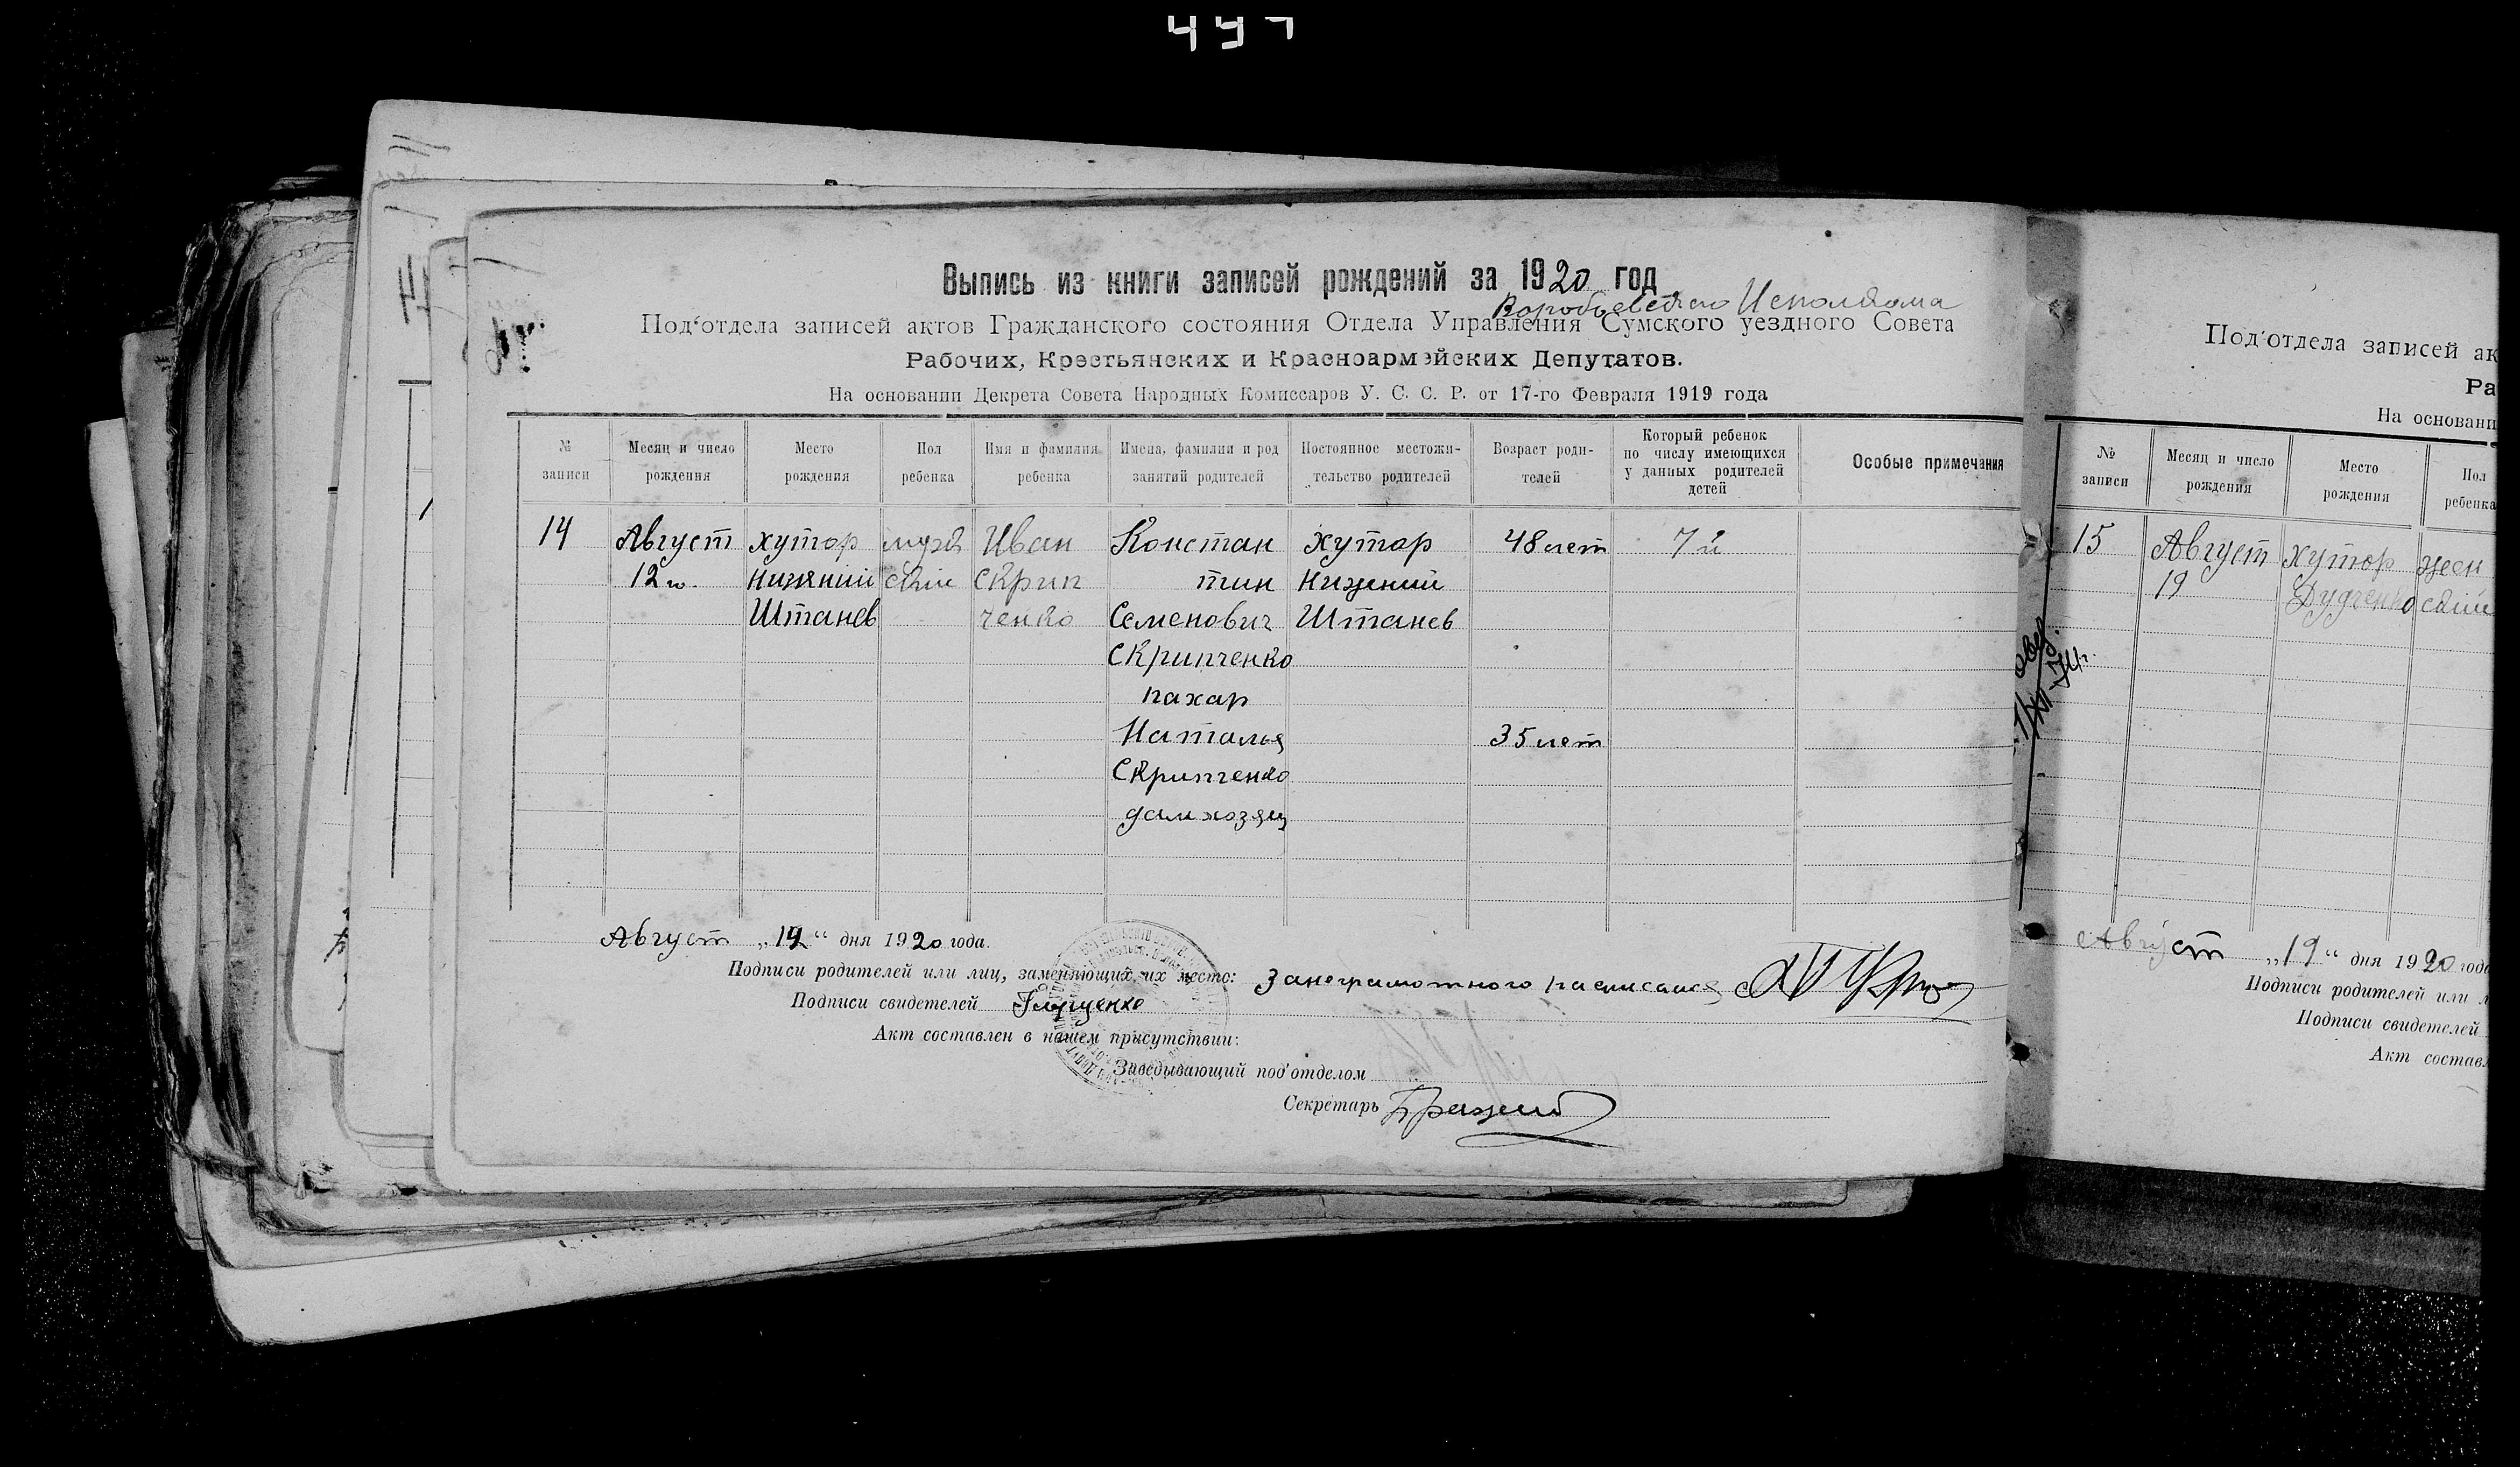 Выпись из книги записей рождений за 1920 год
Воробьевского Исполкома
Под‘отдела записей актов Гражданского состояния Отдела Управления Сумского уездного Совета
Рабочих, Крестьянских и Красноармейских Депутатов.
На основании Декрета Совета Народных Комиссаров У. С. С. Р. от 17-го Февраля 1919 года
№ записи
Месяц и число рождения
Место рождения
Пол ребенка
Имя и фамилия ребенка
Имена, фамилии и род занятий родителей
Постоянное местожительство родителей
Возраст родителей
Который ребенок по числу имеющихся у данных родителей детей
Особые примечания
14 Август хутор мужс Иван Констан хутор 48 лет 7й
12го. нижний кий Скрип тин нижний
Штанев ченко Семенович Штанев
Скрипченко
пахар
Наталья 35 лет
Скрипченко
домхозяц
Август „14“ дня 1920 года.
Подписи родителей или лиц, заменяющих их место: За неграмотного расписался
Подписи свидетелей
Акт составлен в нашем присутствии:
Заведывающий под‘отделом
Секретарь
Под‘отдела записей ак
Ра
На основани
№ записи
Месяц и число рождения
Место рождения
Пол ребенка
15 Август хутор жен
19 Дудченко ский
Август „19“ дня 1920 года
Подписи родителей или л
Подписи свидетелей
Акт составл